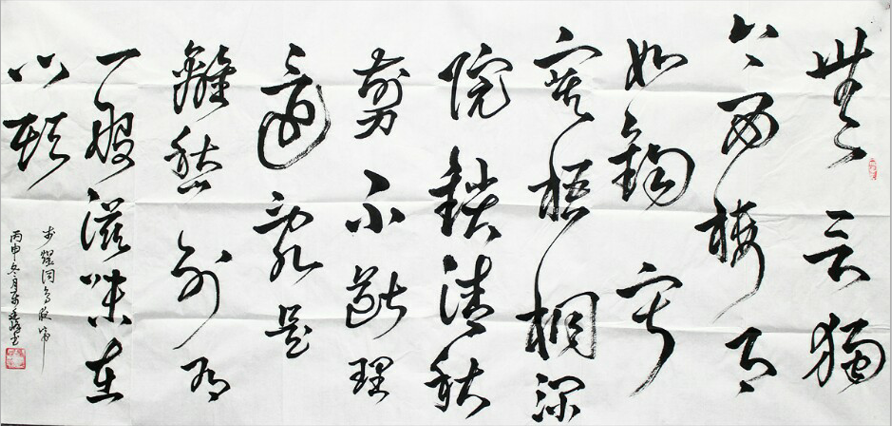 無言獨
上西楼月
如鉤寂
寞梧桐深
院鎖清秋
剪不断理
還亂是
離愁别有
一般滋味在
心頭
丙申冬月